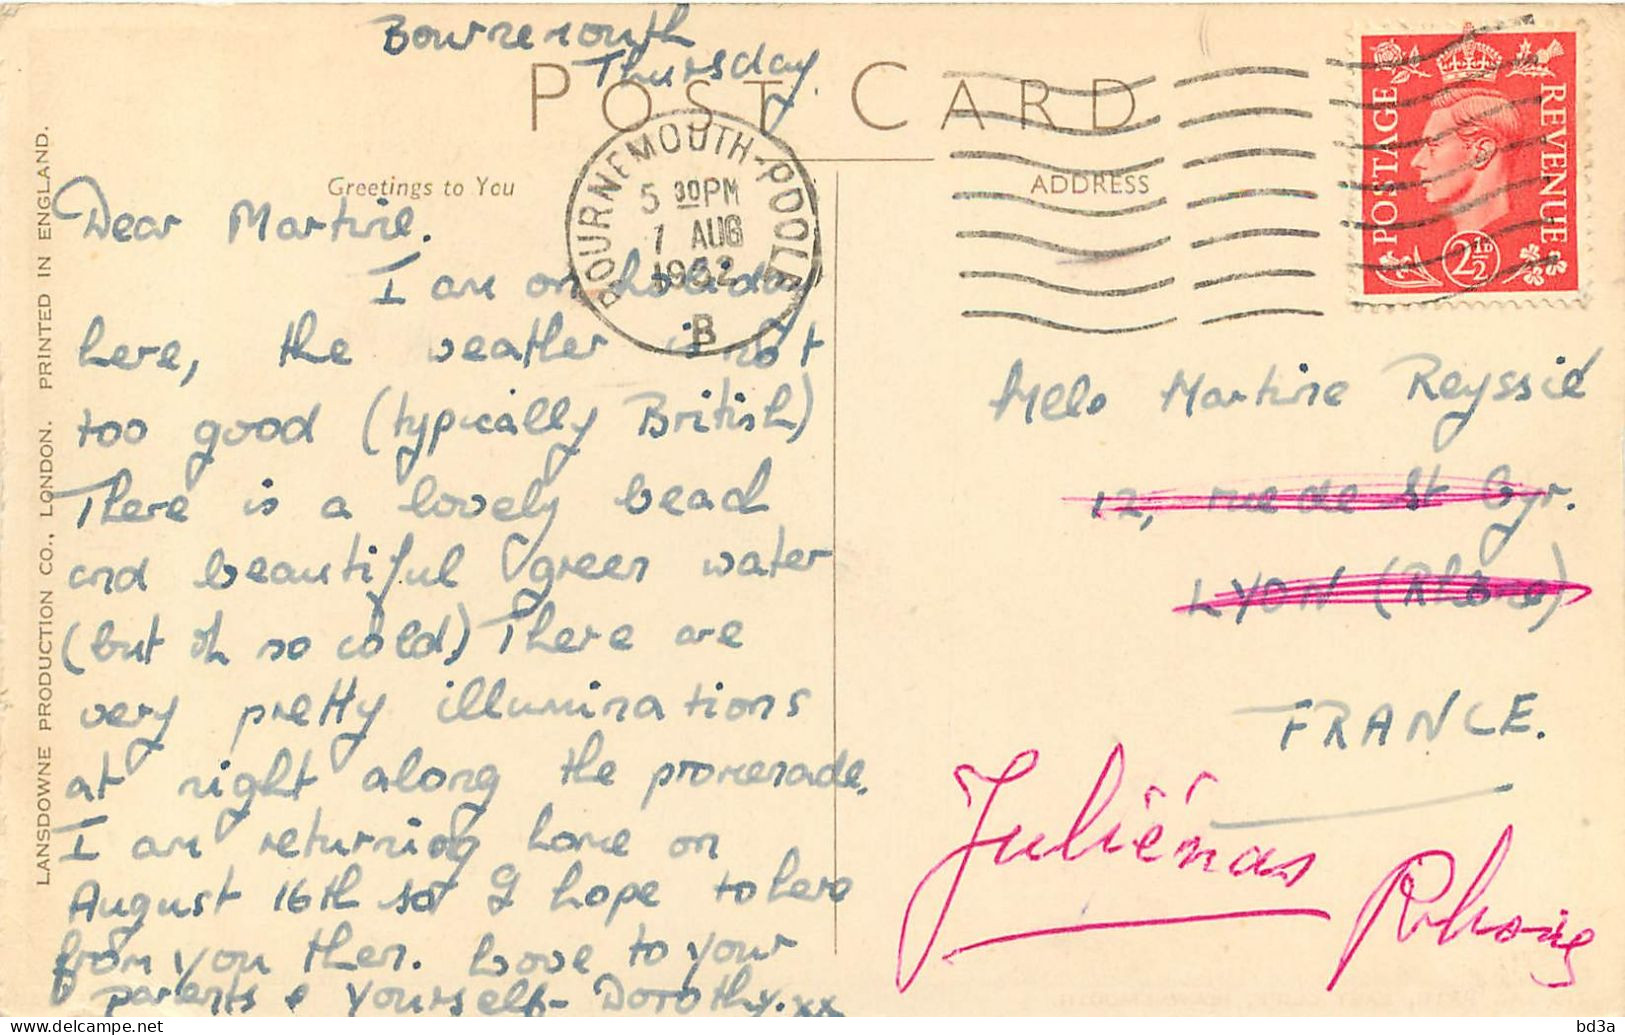 Bournemouth
Thursday.
POST CARD
Greetings to You
ADDRESS
BOURNEMOUTH-POOLE
5 30PM
7 AUG
1952
B
POSTAGE
REVENUE
2½D
Dear Martine.
I am on holiday
here, the weather is not
too good (typically British)
There is a lovely beach
and beautiful green water
(but oh so cold.) There are
very pretty illuminations
at night along the promenade.
I am returning home on
August 16th so I hope to here
from you then. Love to your
parents & yourself- Dorothy.xx
Melle Martine Reyssié
12, rue de St Cyr.
LYON (Rhône)
FRANCE.
Juliénas
Rhône
LANSDOWNE PRODUCTION CO., LONDON. PRINTED IN ENGLAND.
bd3a